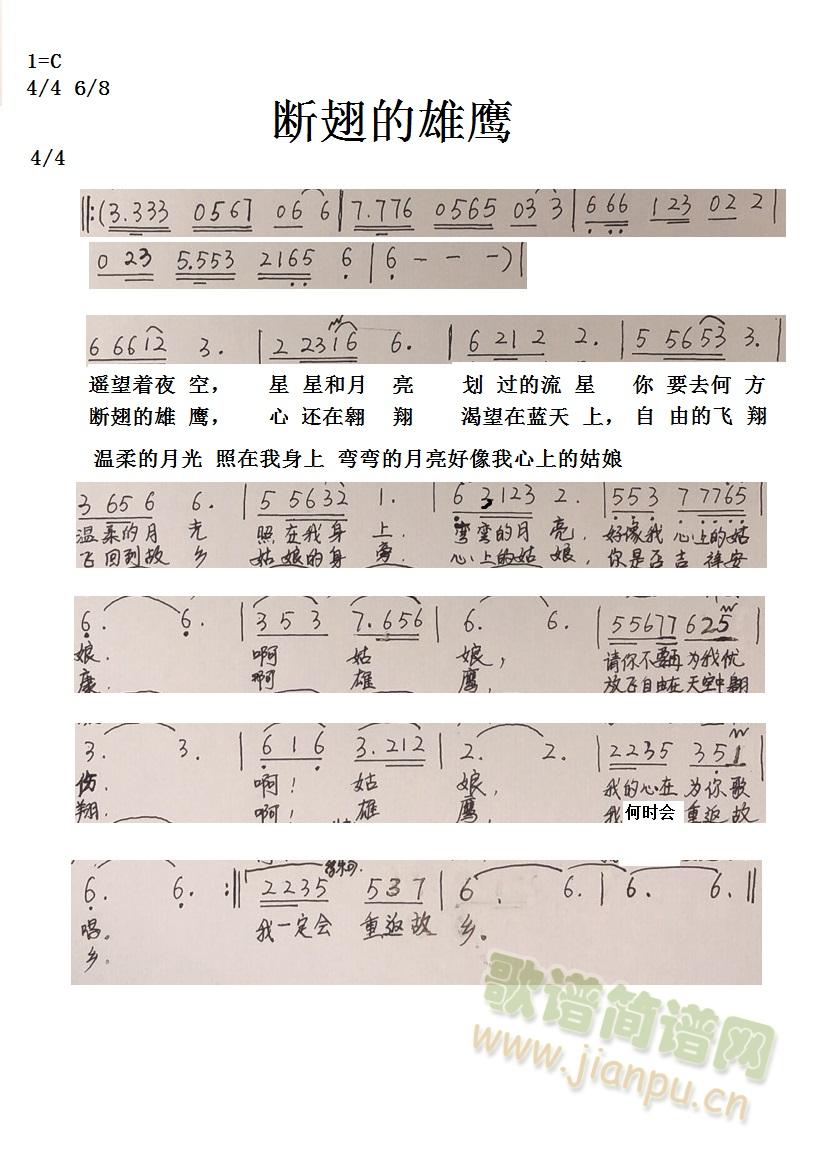 1=C
4/4 6/8
断翅的雄鹰
4/4
‖:(3.333 0567 06 6|7.776 0565 03 3|6 66 1 23 02 2|
0 23 5.553 2165 6|6 - - -)|
6 6612 3.|2 2316 6.|6 21 2 2.|5 5653 3.|
遥望着夜 空， 星 星和月 亮 划 过的流 星 你 要去何 方
断翅的雄 鹰， 心 还在翱 翔 渴望在蓝天 上，自 由的飞 翔
温柔的月光 照在我身上 弯弯的月亮好像我心上的姑娘
3 65 6 6.|5 5632 1.|6 3123 2.|553 7 7765|
温柔的月 光 照 在我身 上. 弯 弯的月 亮. 好像我 心上的姑
飞回到故 乡 姑 娘的身 旁. 心上的姑 娘, 你是否 吉 祥安
6. 6.|3 5 3 7.656|6. 6.|55677 625|
娘. 啊 姑 娘, 请你不要再 为我忧
康. 啊 雄 鹰, 放飞自由在 天空中翱
3. 3.|6 1 6 3.212|2. 2.|2235 351|
伤. 啊! 姑 娘, 我的心在 为你歌
翔. 啊! 雄 鹰, 我何时会 重返故
6. 6. :‖2235 537|6. 6.|6. 6.‖
唱。 我一定会 重返故 乡。
乡。
歌谱简谱网
www.jianpu.cn